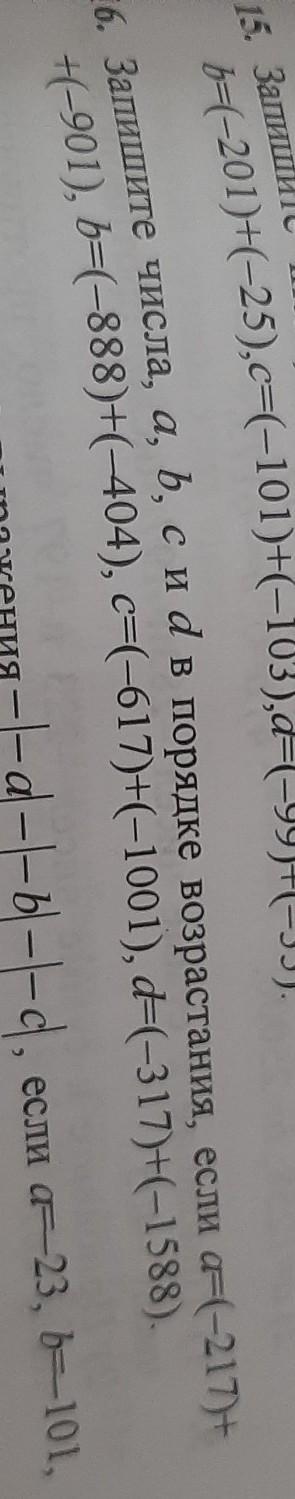 15. Запишите
b=(–201)+(–25), c=(–101)+(–103), d=(–99)+(–55).
16. Запишите числа, a, b, c и d в порядке возрастания, если a=(–217)+
+(–901), b=(–888)+(–404), c=(–617)+(–1001), d=(–317)+(–1588).
–|–a|–|–b|–|–c|, если a=–23, b=–101,